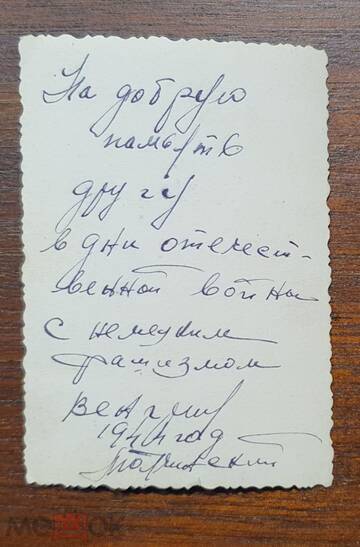 На добрую
память
другу
в дни отечест-
венной войны
с немецким
фашизмом
Венгрия
1944 год